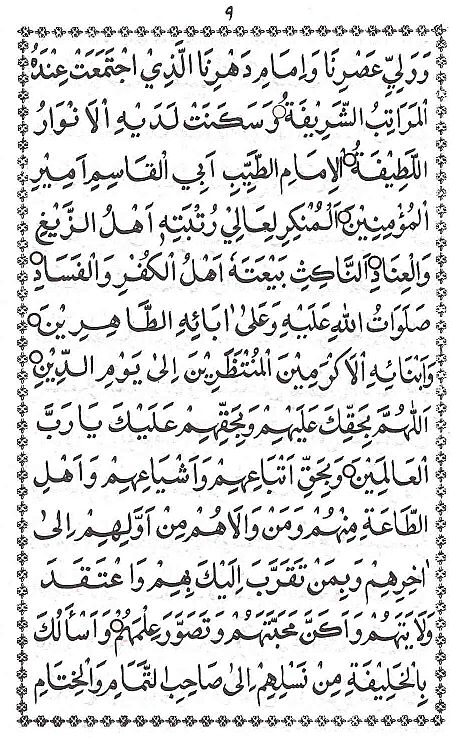 ٩
وَوَلِيِّ عَصْرِنَا وَاِمَامِ دَهْرِنَا الَّذِيْ اجْتَمَعَتْ عِنْدَهُ
الْمَرَاتِبُ الشَّرِيْفَةُ وَسَكَنَتْ لَدَيْهِ الْاَنْوَارُ
اللَّطِيْفَةُ اَلْاِمَامِ الطَّيِّبِ اَبِي الْقَاسِمِ اَمِيْرِ
الْمُؤْمِنِيْنَ اَلْمُنْكِرِ لِعَالِيْ رُتْبَتِهِ اَهْلُ الزَّيْغِ
وَالْعِنَادِ اَلنَّاكِثِ بَيْعَتَهُ اَهْلُ الْكُفْرِ وَالْفَسَادِ
صَلَوَاتُ اللهِ عَلَيْهِ وَعَلٰى اٰبَائِهِ الطَّاهِرِيْنَ
وَاَبْنَائِهِ الْاَكْرَمِيْنَ الْمُنْتَظَرِيْنَ اِلٰى يَوْمِ الدِّيْنِ
اَللّٰهُمَّ بِحَقِّكَ عَلَيْهِمْ وَبِحَقِّهِمْ عَلَيْكَ يَا رَبَّ
الْعَالَمِيْنَ وَبِحَقِّ اَتْبَاعِهِمْ وَاَشْيَاعِهِمْ وَاَهْلِ
الطَّاعَةِ مِنْهُمْ وَمَنْ وَالَاهُمْ مِنْ اَوَّلِهِمْ اِلٰى
اٰخِرِهِمْ وَبِمَنْ تَقَرَّبَ اِلَيْكَ بِهِمْ وَاعْتَقَدَ
وَلَايَتَهُمْ وَاَكَنَّ مَحَبَّتَهُمْ وَتَصَوَّرَ عِلْمَهُمْ وَاَسْاَلُكَ
بِالْخَلِيْفَةِ مِنْ نَسْلِهِمْ اِلٰى صَاحِبِ التَّمَامِ وَالْخِتَامِ